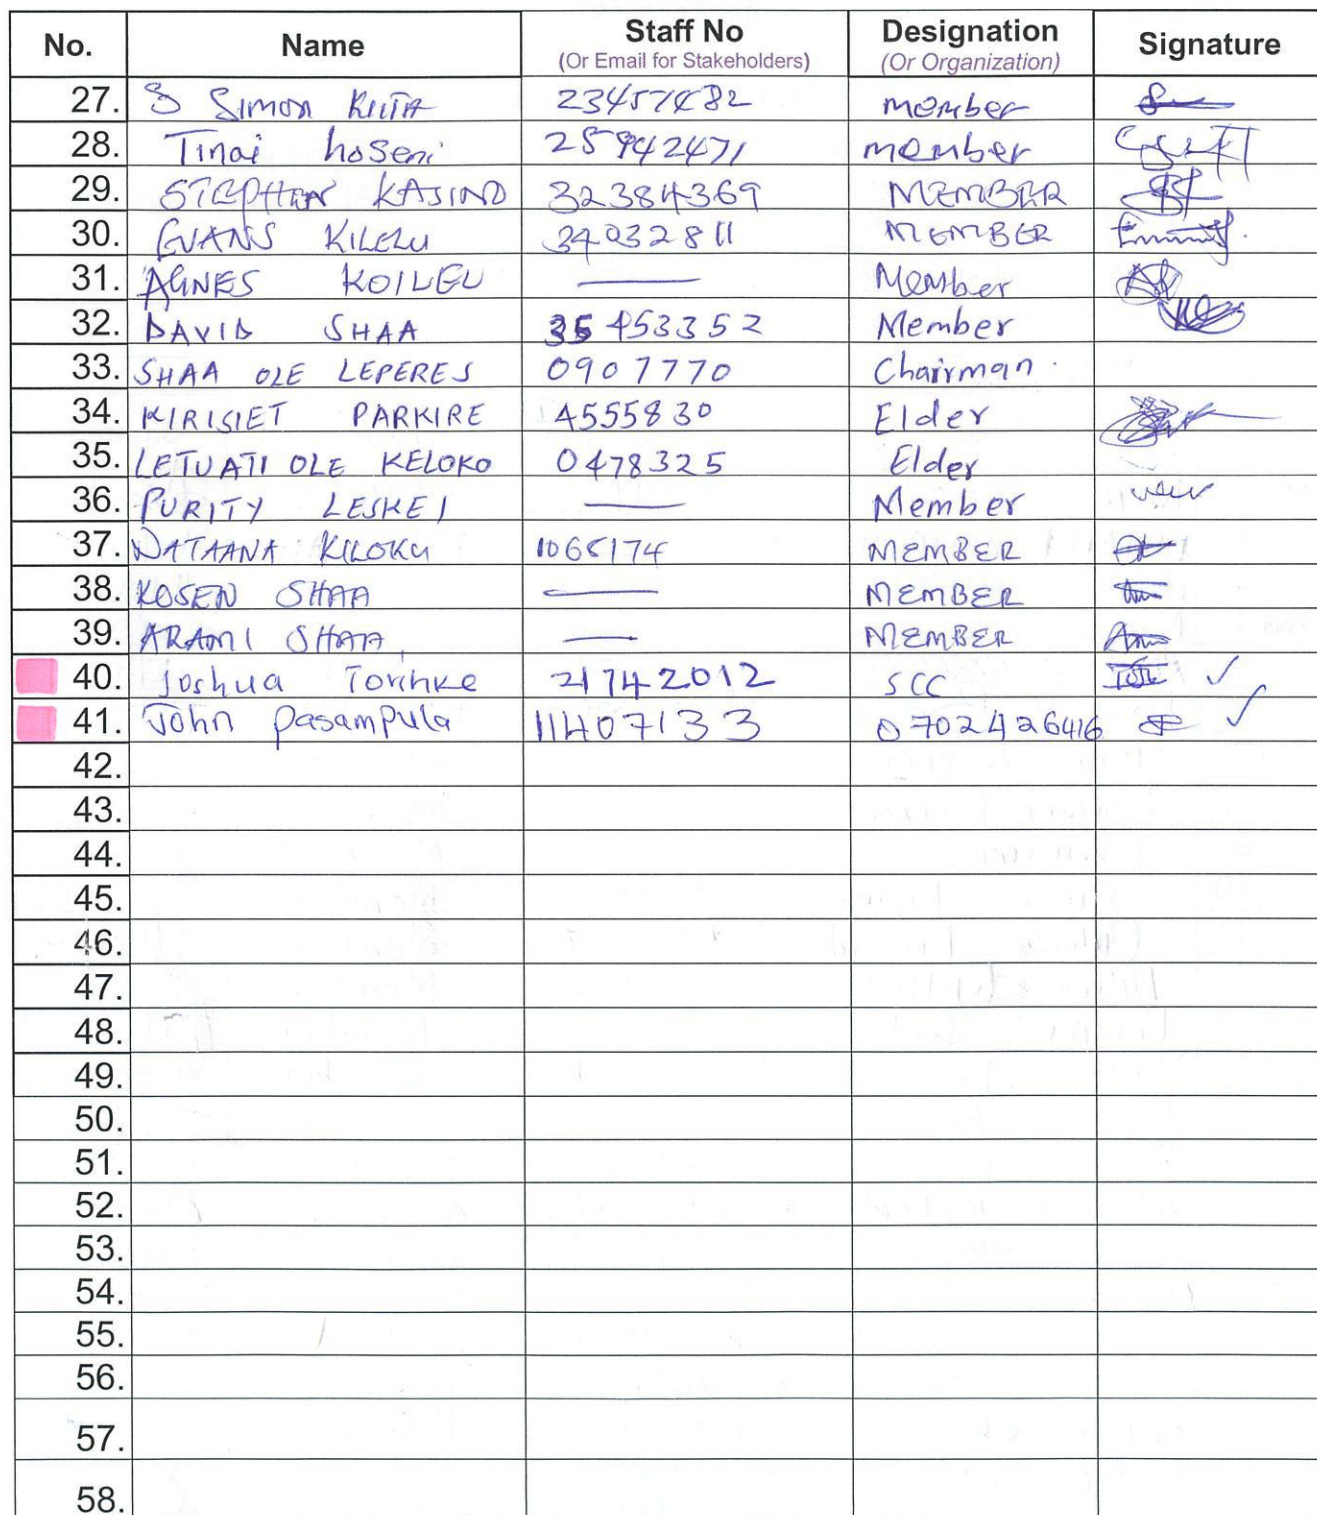 No. Name Staff No Designation Signature
(Or Email for Stakeholders) (Or Organization)
27. Simon member
28. Tinai hoseni 25942471 member
29. STEPHEN KASIND 32384369 MEMBER
30. EVANS KILELU 34032811 MEMBER
31. AGNES KOILEU — Member
32. DAVID SHAA 35453352 Member
33. SHAA OLE LEPERES 0907770 Chairman.
34. KIRISIET PARKIRE 4555830 Elder
35. LETUATI OLE KELOKO 0478325 Elder
36. PURITY LESKEI — Member
37. NATAANA KILOKU 1065174 MEMBER
38. KOSEN SHAA — MEMBER
39. ARAMI SHAA — MEMBER
40. Joshua 21742012 SCC ✓
41. John Pasampula 11407133 0702426416 ✓
42.
43.
44.
45.
46.
47.
48.
49.
50.
51.
52.
53.
54.
55.
56.
57.
58.